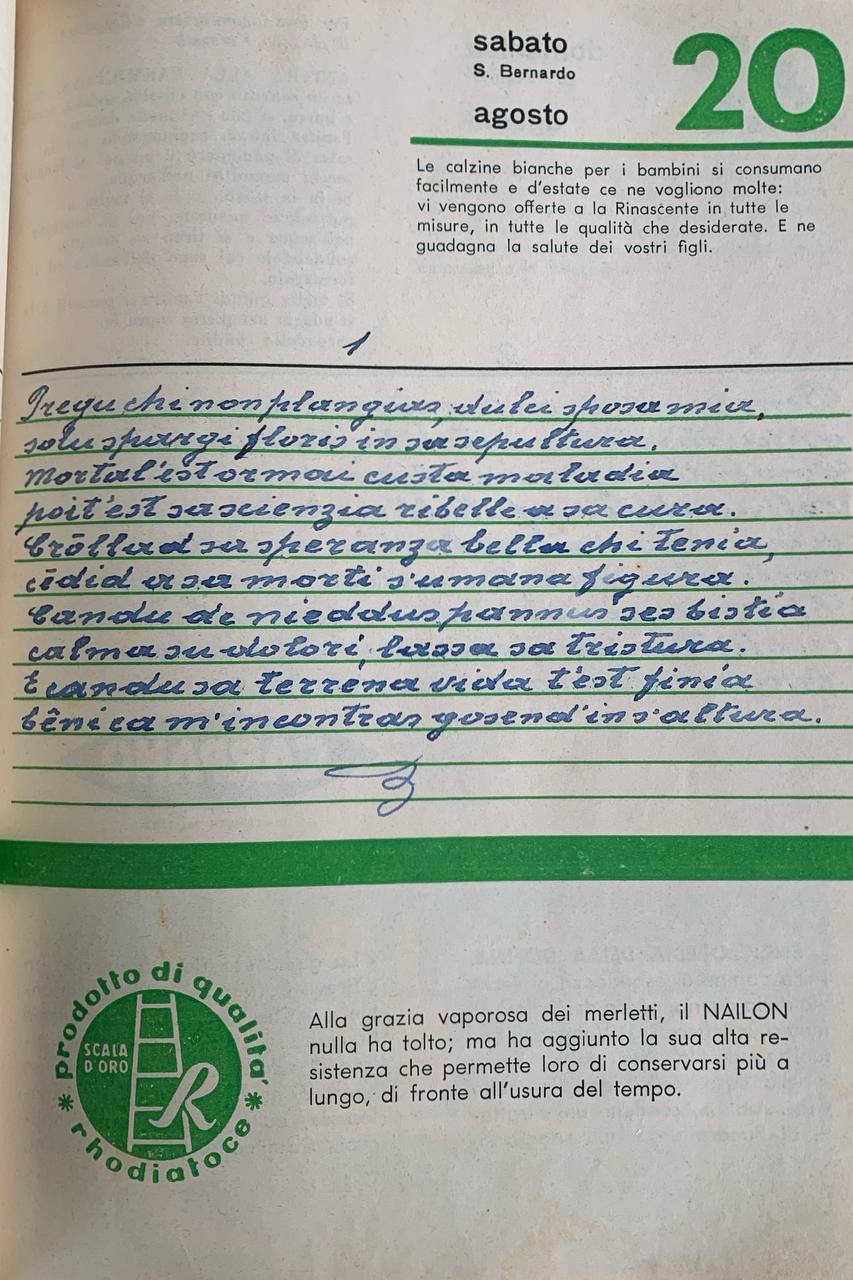 sabato
S. Bernardo
agosto
20
Le calzine bianche per i bambini si consumano
facilmente e d'estate ce ne vogliono molte:
vi vengono offerte a la Rinascente in tutte le
misure, in tutte le qualità che desiderate. E ne
guadagna la salute dei vostri figli.
1
Pregu chi non plangias, dulci sposa mia,
solu spargi floris in sa sepultura.
Mortal'est ormai custa maladia
poit'est sa scienzia ribelle a sa cura.
Crôllad sa speranza bella chi tenia,
cêdid a sa morti s'umana figura.
Candu de nieddus pannus ses bistia
calma su dolori, lassa sa tristura.
E candu sa terrena vida t'est finia
bêni ca m'incontras gosend'in s'altura.
prodotto di qualità
SCALA
D'ORO
R
* rhodiatoce *
Alla grazia vaporosa dei merletti, il NAILON
nulla ha tolto; ma ha aggiunto la sua alta re-
sistenza che permette loro di conservarsi più a
lungo, di fronte all'usura del tempo.